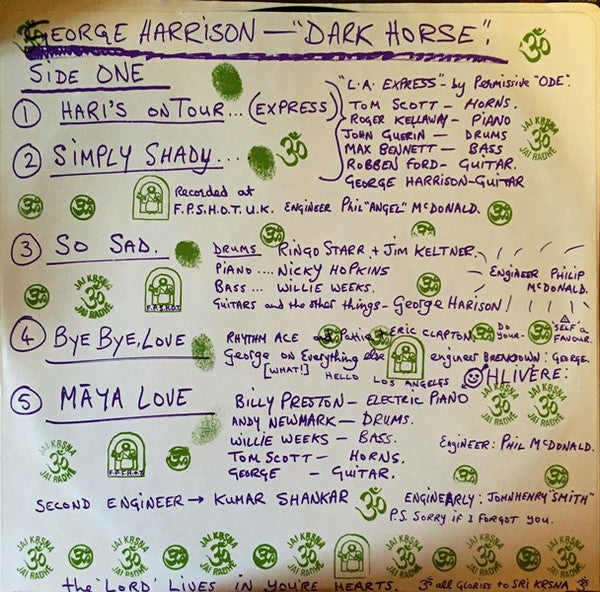 GEORGE HARRISON — "DARK HORSE".
SIDE ONE
① HARI'S ON TOUR... (EXPRESS)
"L.A. EXPRESS" - by Permissive "ODE".
TOM SCOTT — HORNS.
ROGER KELLAWAY — PIANO
JOHN GUERIN — DRUMS
MAX BENNETT — BASS
ROBBEN FORD — GUITAR.
GEORGE HARRISON — GUITAR
② SIMPLY SHADY...
ॐ
JAI KRSNA
ॐ
JAI RADHE
Recorded at
F.P.S.H.O.T. U.K. ENGINEER PHIL "ANGEL" McDONALD.
③ SO SAD.
DRUMS RINGO STARR + JIM KELTNER.
PIANO .... NICKY HOPKINS
BASS ... WILLIE WEEKS.
GUITARS and the other things - GEORGE HARISON!
ENGINEER PHILIP
McDONALD.
JAI KRSNA
ॐ
JAI RADHE
F.P.S.H.O.T.
④ BYE BYE, LOVE
RHYTHM ACE and Pattie + ERIC CLAPTON. Do your-self a FAVOUR.
George on Everything else engineer BREAKDOWN: GEORGE.
[WHAT!] HELLO LOS ANGELES OHLIVERE:
⑤ MĀYA LOVE
BILLY PRESTON — ELECTRIC PIANO
ANDY NEWMARK — DRUMS.
WILLIE WEEKS — BASS.
TOM SCOTT — HORNS.
GEORGE — GUITAR.
ENGINEER: PHIL McDONALD.
JAI KRSNA
ॐ
JAI RADHE
F.P.S.H.O.T.
SECOND ENGINEER → KUMAR SHANKAR ॐ
ENGINEARLY: JOHNHENRY "SMITH"
P.S. SORRY IF I FORGOT YOU.
JAI KRSNA
ॐ
JAI RADHE
the 'LORD' LIVES IN YOU'RE HEARTS. ॐ all GLORIES to SRI KRSNA ॐ